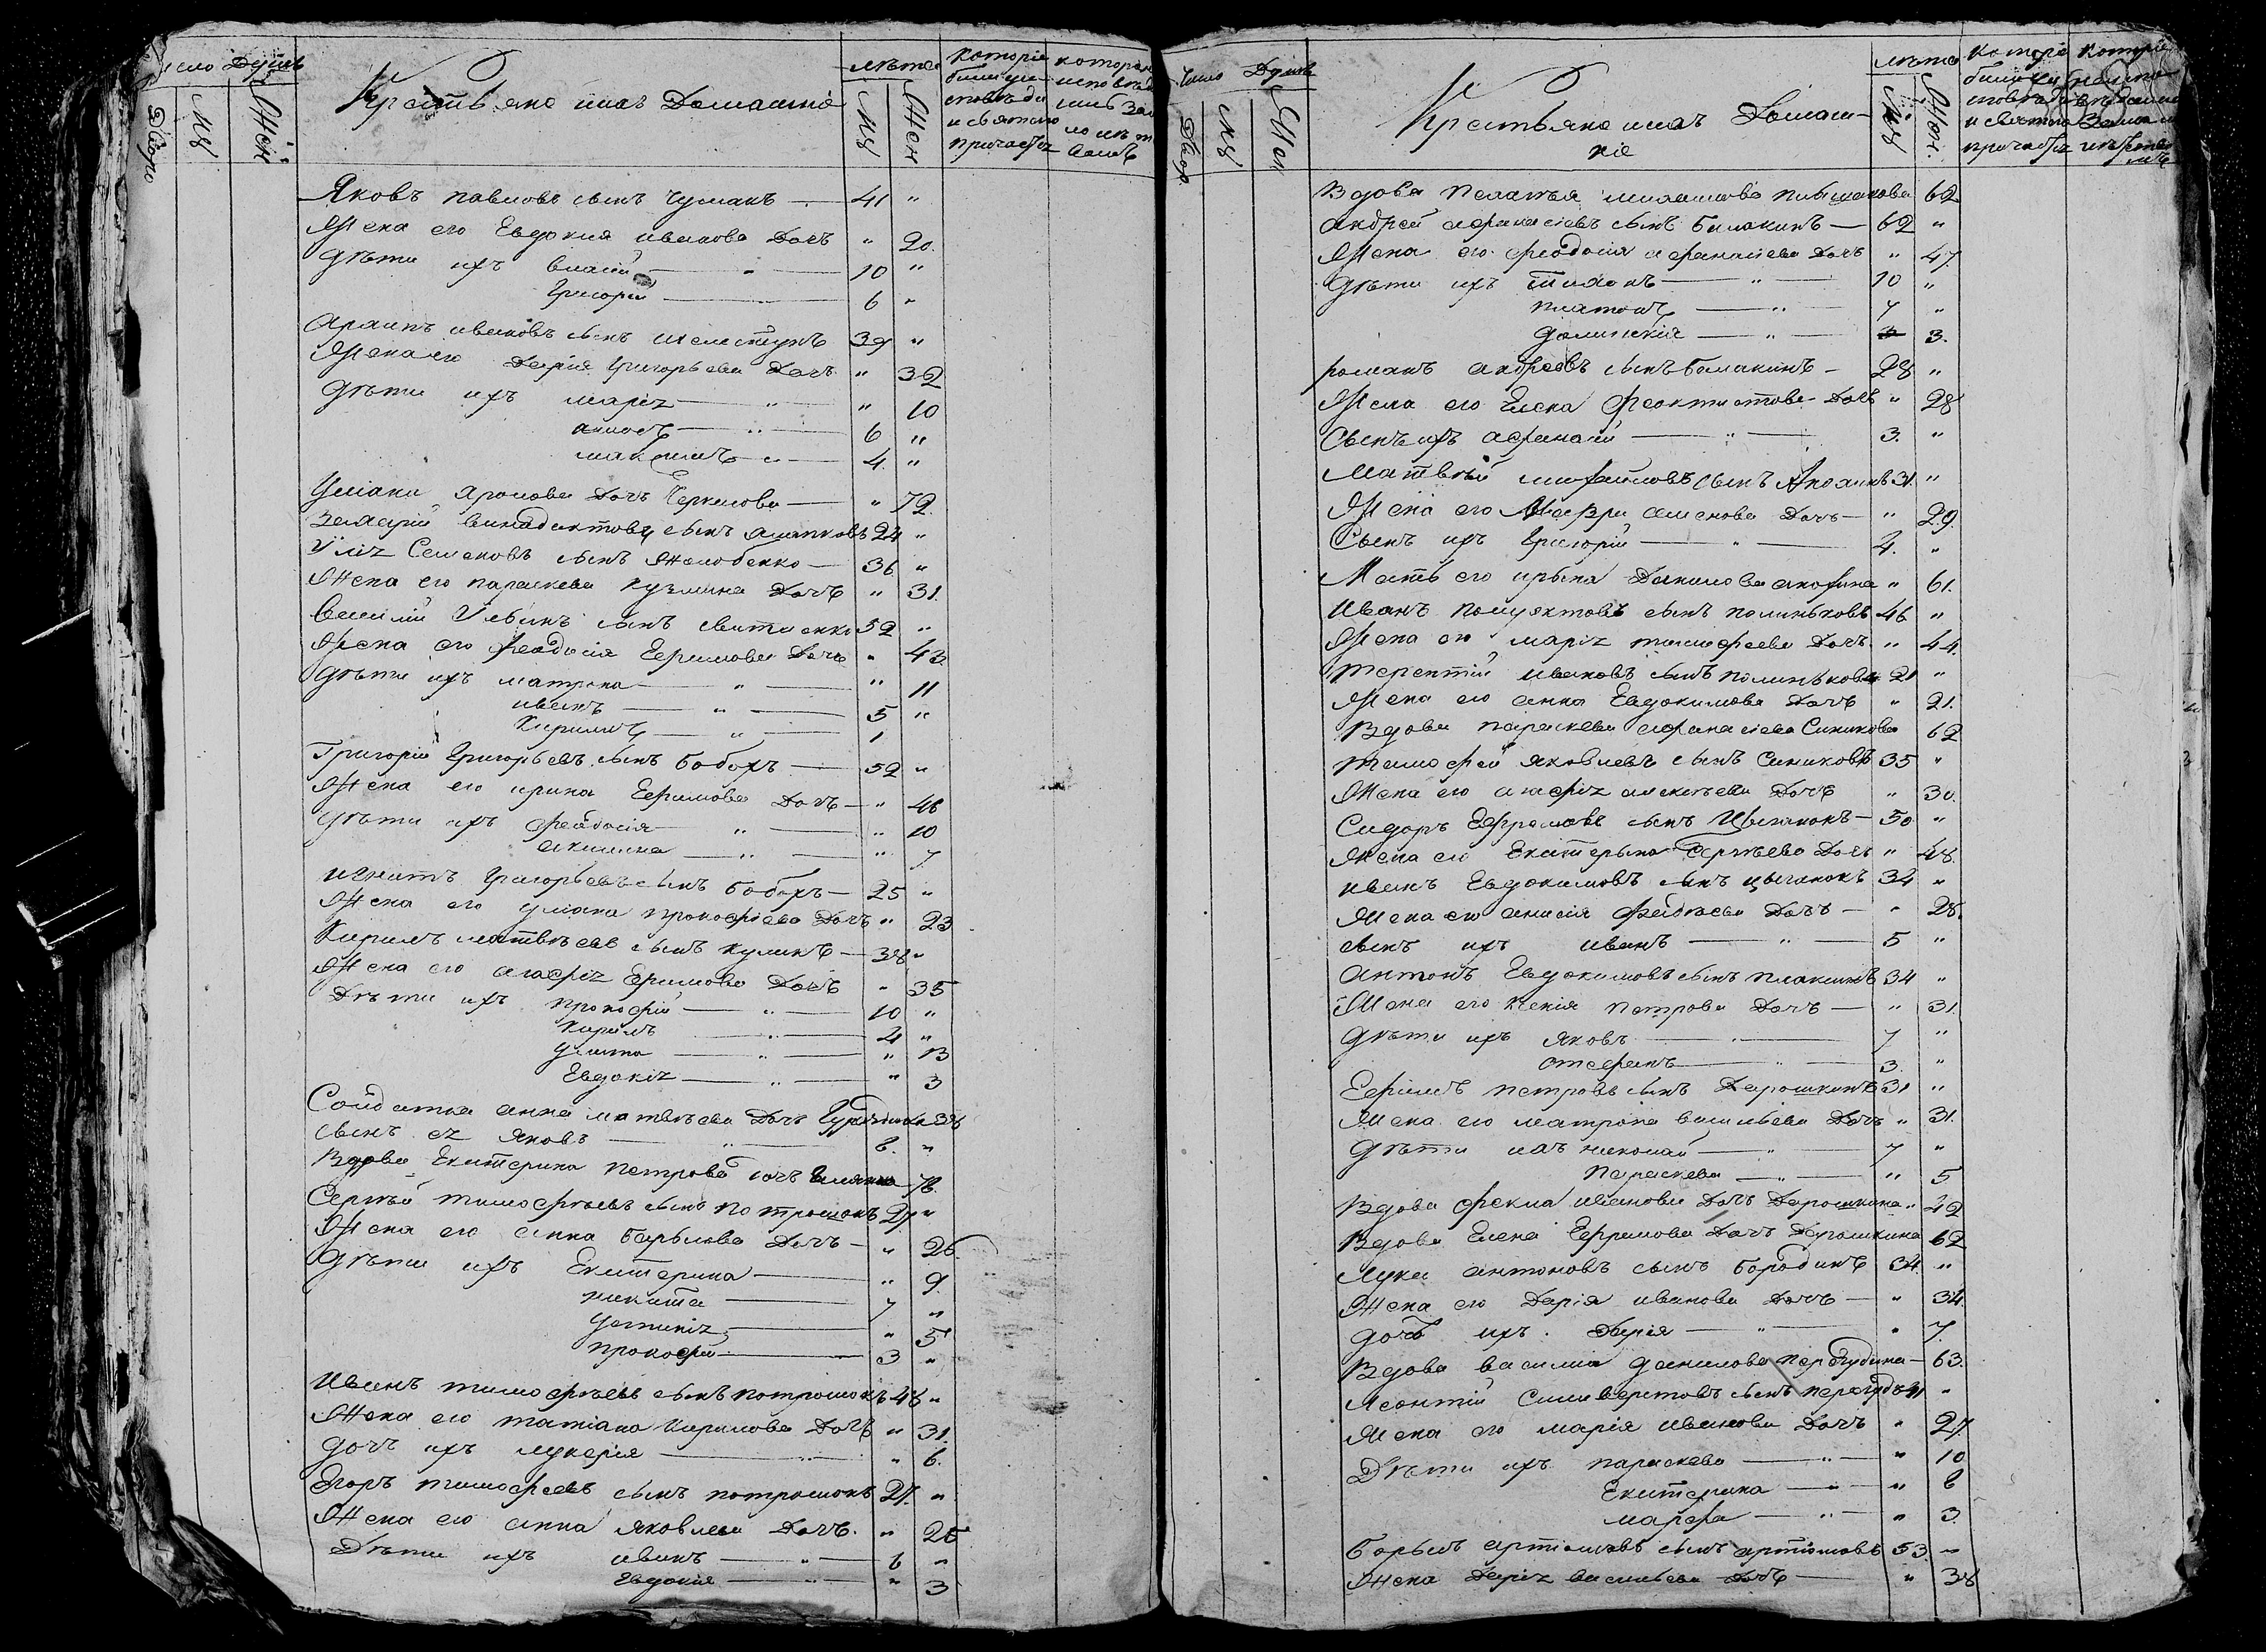 Число Душъ
Дворо
Му
Жен
Крестьяне ихъ Домашніе
лѣта
Му
Жен
Которіе
были ѵ испо-
вѣди
и святаго
причастія
Яковъ павловъ сынъ Чумакъ 41 "
Жена его Евдокия иванова Дочь " 20.
Дѣти ихъ власій 10 "
Григорій 6 "
ивановъ сынъ шелестунъ 39 "
Жена его Дарія григорьева Дочь " 32
Дѣти ихъ марія " 10
амосъ 6 "
максимъ 4 "
Дочь " 72.
сынъ 24 "
Семеновъ сынъ Жолобенко 36 "
Жена его параскева кузмина Дочь " 31.
сынъ 52 "
Жена его феодосія Ефимова Дочь " 43
Дѣти ихъ матрона " 11
иванъ 5 "
Кирилъ 1
Григорій Григорьевъ сынъ бобохъ 52 "
Жена его ирина Ефимова Дочь " 46
Дѣти ихъ феодосія " 10
акилина " 7
игнатъ Григорьевъ сынъ бобохъ 25 "
Жена его уліана прокофіева Дочь " 23
Кирилъ матвѣевъ сынъ кулинъ 38 "
Жена его агафія Ефимова Дочь " 35
Дѣти ихъ прокофій 10 "
Кирилъ 4 "
улита " 13
Евдокія " 3
Солдатка анна матвѣева Дочь 38
сынъ ея Яковъ 6. "
Вдова Екатерина петрова дочь 76.
Сергѣй тимофѣевъ сынъ потрошокъ 27 "
Жена его анна Дочь " 26.
Дѣти ихъ Екатерина " 9.
никита 7 "
" 5
прокофій 3 "
Иванъ тимофѣевъ сынъ потрошокъ 48 "
Жена его татіана кирилова Дочь " 31.
Дочь ихъ лукерія " 6.
Егоръ тимофеевъ сынъ потрошокъ 27. "
Жена его анна яковлева Дочь " 26
Дѣти ихъ иванъ 6 "
Евдокія " 3
Число Душъ
Двор
Му
Жен
Крестьяне ихъ Домаш-
ніе
лѣта
Му
Жен.
Вдова Пелагея 62
андрей афанасіевъ сынъ балакинъ 62 "
Жена его феодосія афанасіева Дочь " 47
Дѣти ихъ тихонъ 10 "
платонъ 7 "
3.
романъ андреевъ сынъ балакинъ 28 "
Жена его Елена феоктистова Дочь " 28
Сынъ ихъ афанасій 3. "
Матвѣй михайловъ сынъ 31. "
Жена его Мавра семенова Дочь " 29
Сынъ ихъ григорій 4. "
Мать его ирына Данилова " 61.
Иванъ сынъ полиньковъ 46 "
Жена его марія тимофеева Дочь " 44.
терентій ивановъ сынъ полиньковъ 21 "
Жена его анна Евдокимова Дочь " 21.
Вдова параскева афанасіева Синикова 62
тимофей яковлевъ сынъ Синиковъ 35 "
Жена его агафія алексѣева Дочь " 30.
Сидоръ Ефремовъ сынъ Цыганокъ 50 "
Жена его Екатерына Сергѣева Дочь " 48.
иванъ Евдокимовъ сынъ цыганокъ 34 "
Жена его анисія Дочь " 28.
сынъ ихъ иванъ 5 "
антонъ Евдокимовъ сынъ плаксинъ 34 "
Жена его Ксенія петрова Дочь " 31.
Дѣти ихъ яковъ 7 "
стефанъ 3. "
Ефимъ петровъ сынъ Дарошкинъ 31 "
Жена его матрона васильева Дочь " 31.
Дѣти ихъ николай 7 "
Параскева " 5
Вдова фекла иванова Дочь Дарошкина " 42
Вдова Елена Ефимова Дочь Дарошкина 62
Лука антоновъ сынъ бородинъ 34. "
Жена его Дарія иванова Дочь " 34.
Дочь ихъ Дарія " 7.
Вдова василиса данилова 63.
Леонтій Силиверстовъ сынъ 31 "
Жена его марія иванова Дочь " 27
Дѣти ихъ параскева " 10
Екатерина " 6
марфа " 3.
сынъ артіомовъ 53. "
Жена Дарія васильева Дочь " 38